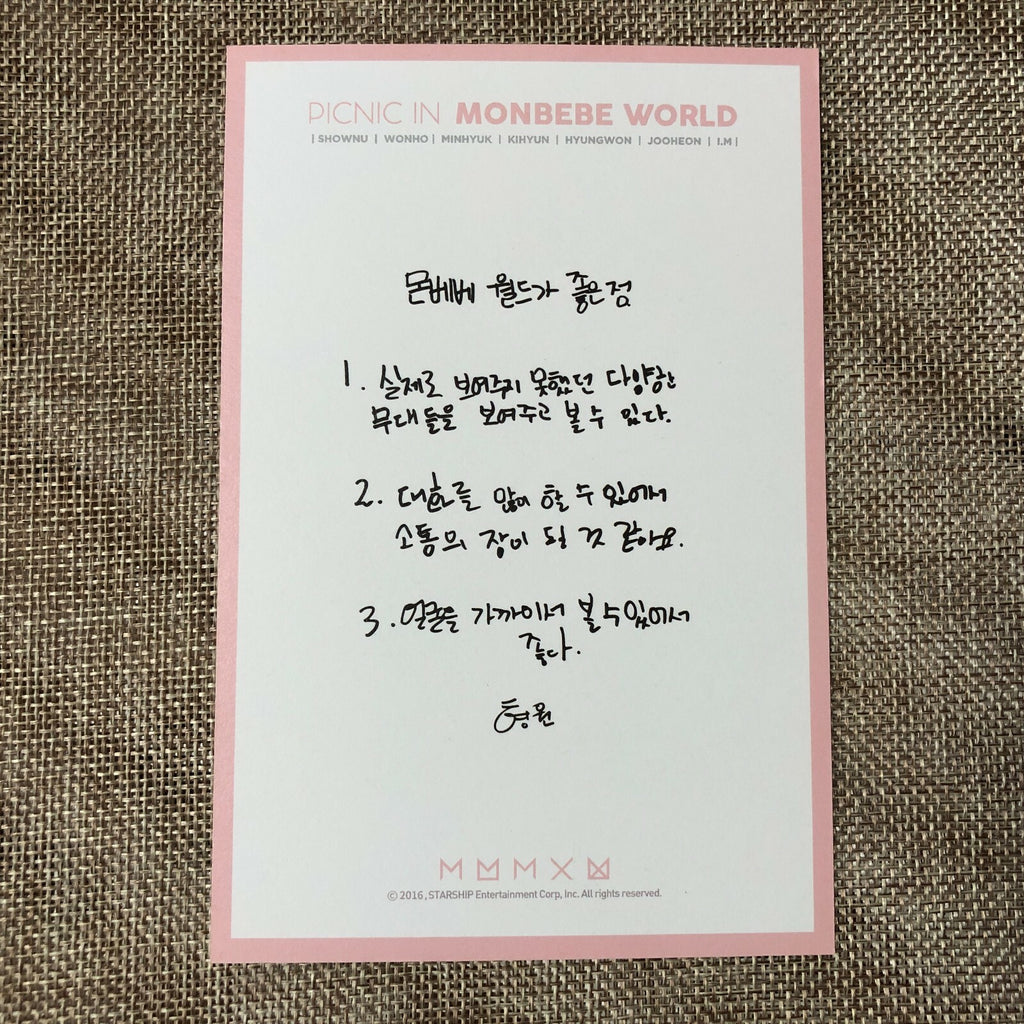 PICNIC IN MONBEBE WORLD
| SHOWNU | WONHO | MINHYUK | KIHYUN | HYUNGWON | JOOHEON | I.M |
몬베베 월드가 좋은점
1. 실제로 보여주지 못했던 다양한
무대들을 보여주고 볼 수 있다.
2. 대화를 많이 할 수 있어서
소통의 장이 될 것 같아요.
3. 얼굴을 가까이서 볼 수 있어서
좋다.
형원
© 2016, STARSHIP Entertainment Corp, Inc. All rights reserved.